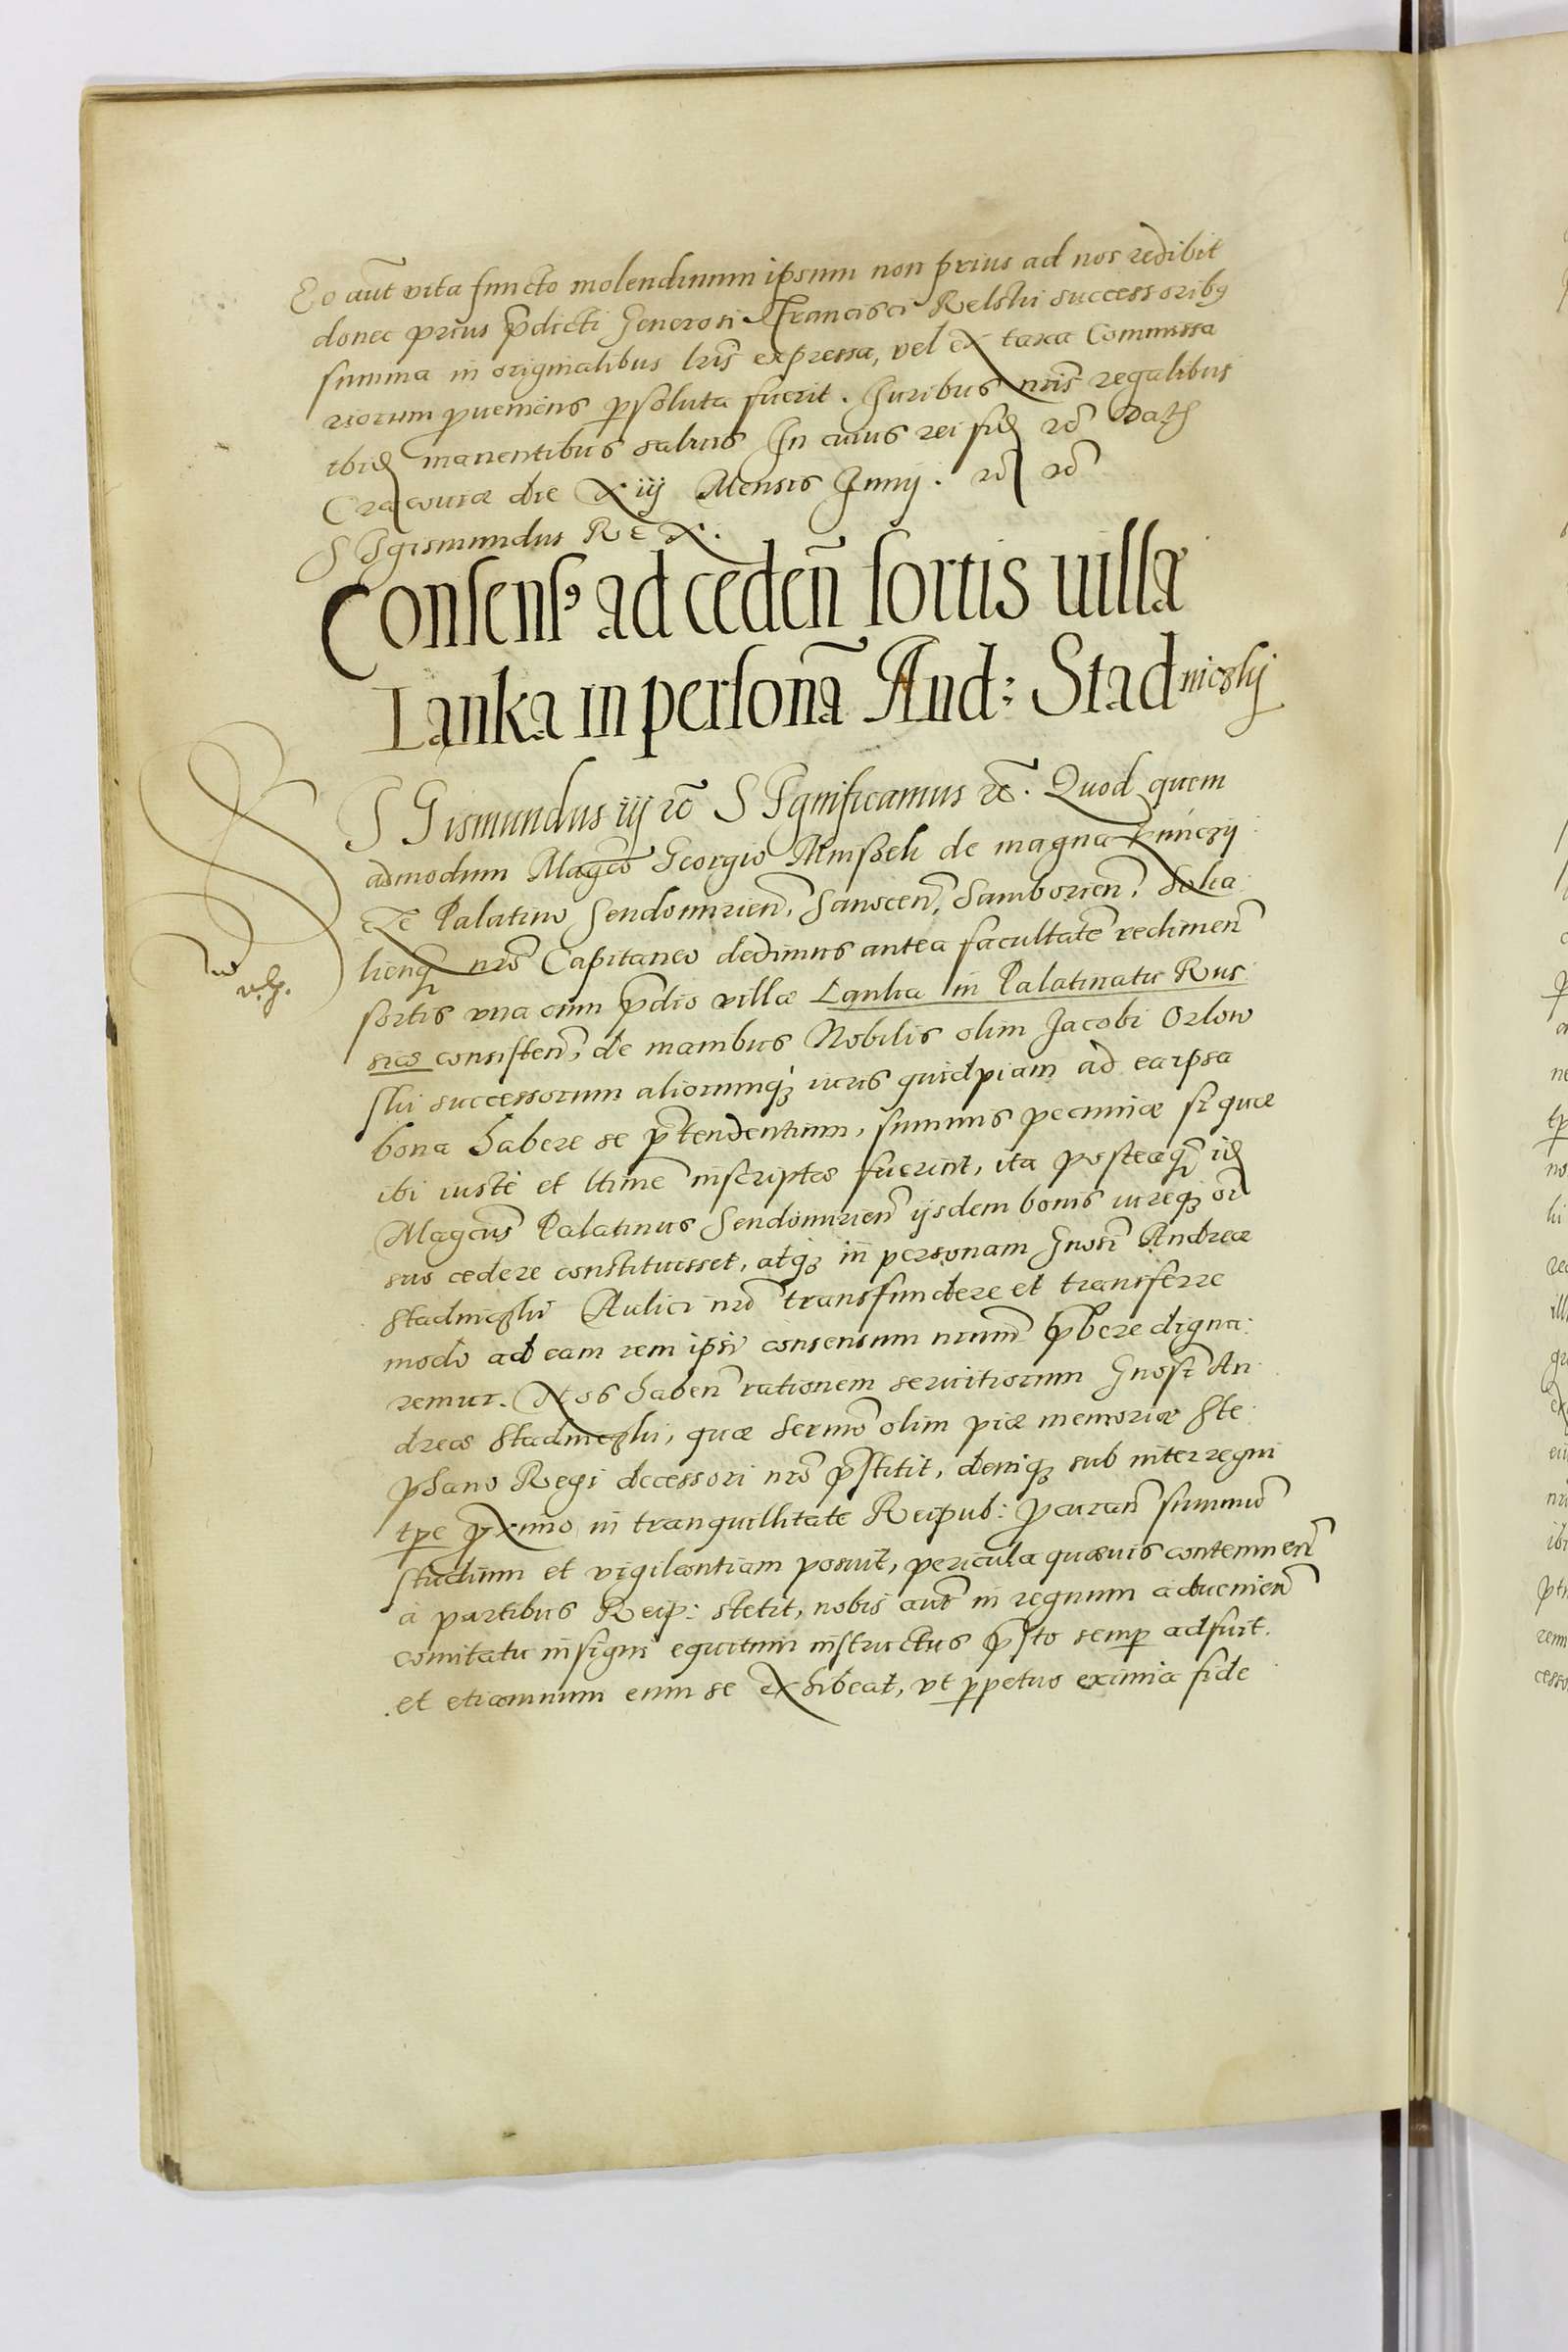 Eo aut̃ vita functo molendinum ipsum non prius ad nos redibit
donec prius p̃dicti Generosi Francisci Relski successoribꝯ
summa in originalibus lrĩs expressa, vel ex taxa Commissa
riorum proueniens ꝑsoluta fuerit. Iuribus nr̃is regalibus
ibid manentibus saluis In cuius rei fid rc̃ Dat
Cracouiæ die Xiij Mensis Junij. rc̃
SIgismundus REX.
Consensꝯ ad ceden̄ sortis uillæ
Lanka in personā And: Stadniczkij
SIGismundus iij rc̃ SIgnificamus rc̃. Quod quem
admodum Magco Georgio Mnißek de magna Kunczij
cze Palatino Sendomirien̄, Sanocen̄, Samborien̄, Dolia
lienqꝫ nrõ Capitaneo dedimus antea facultatẽ redimen̄
sortis vna cum p̃dio villæ Lanka in Palatinatu Rus
siæ consisten̄, de manibus Nobilis olim Jacobi Orlow
ski successorum aliorumqꝫ iuris quidpiam ad ea ipsa
bona habere se p̃tendentium, summis pecuniæ si quæ
ibi iustè et ltime inscriptæ fuerint, ita posteaqꝫ id
Magcus Palatinus Sendomirien̄ ijsdem bonis iureqꝫ oĩ
suo cedere constituisset, atqꝫ in personam Gnosi Andreæ
Stadniczki Aulici nrĩ transfundere et transferre
modo ad eam rem ipsi consensum nrum̃ p̃bere digna:
remur. Nos haben̄ rationem seruitiorum Gnosi An
dreæ Stadniczki, quæ Sermo olim piæ memoriæ Ste:
phano Regi decessori nrõ p̃stitit, deniqꝫ sub interregni
tꝑe proximo in tranquillitate Reipub: procuran̄ summũ
studium et vigilantiam posuit, pericula quæuis contemnen̄
à partibus Reip: stetit, nobis aut̃ in regnum aduenien̄
comitatu insigni equitum instructus p̃sto semꝑ adfuit.
et etiamnum eum se exhibeat, vt ꝑpetuo eximia fide